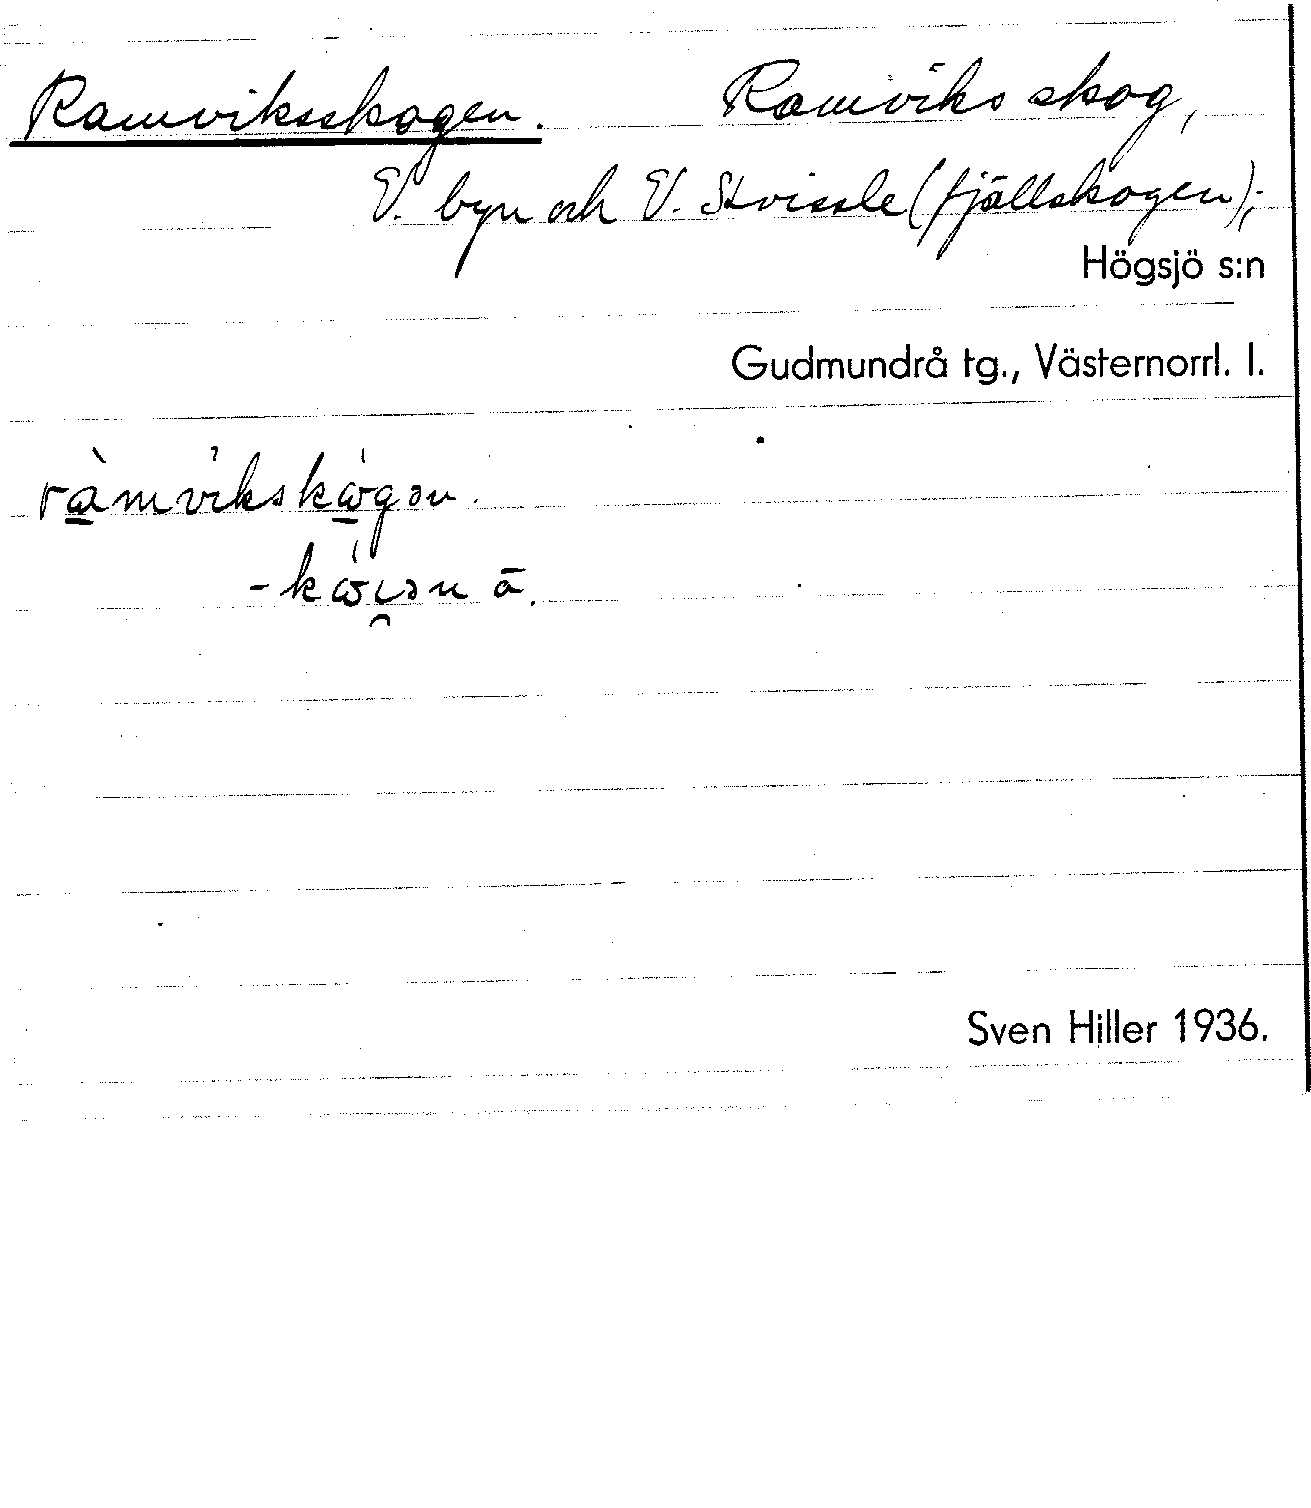 Ramviksskogen. Ramviks skog,
V. byn och V. Stvissle (fjällskogen);
Högsjö s:n
Gudmundrå tg., Västernorrl. l.
ràmvikskωgən.
-kωɩən ā.
Sven Hiller 1936.